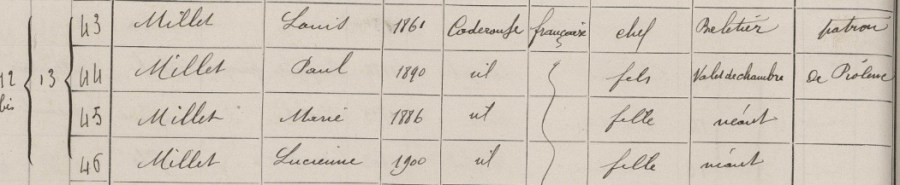 43 Millet Louis 1861 Caderousse française chef Beletier patron
12 bis 13 44 Millet Paul 1890 id fils Valet de chambre de Piolenc
45 Millet Marie 1886 id fille néant
46 Millet Lucienne 1900 id fille néant